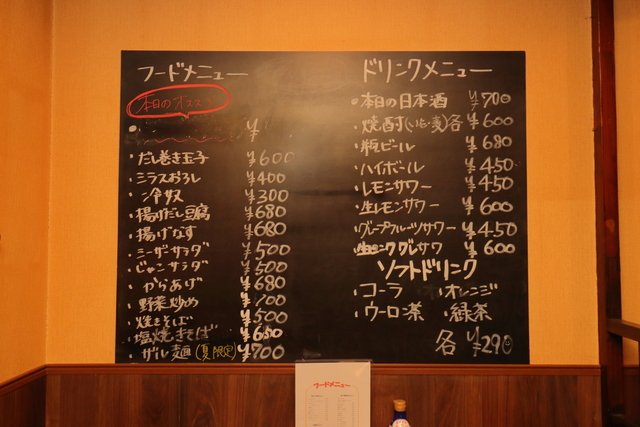 フードメニュー
本日のオススメ
¥
・だし巻き玉子 ¥600
・シラスおろし ¥400
・冷奴 ¥300
・揚げだし豆腐 ¥680
・揚げなす ¥680
・シーザーサラダ ¥500
・じゃこサラダ ¥500
・からあげ ¥680
・野菜炒め ¥700
・焼きそば ¥500
・塩焼きそば ¥650
・ザル麺(夏限定) ¥700
ドリンクメニュー
・本日の日本酒 ¥700
・焼酎(いも・麦)各 ¥600
・瓶ビール ¥680
・ハイボール ¥450
・レモンサワー ¥450
・生レモンサワー ¥600
・グレープフルーツサワー ¥450
サワ ¥600
ソフトドリンク
・コーラ ・オレンジ
・ウーロン茶 ・緑茶
各 ¥290
フードメニュー